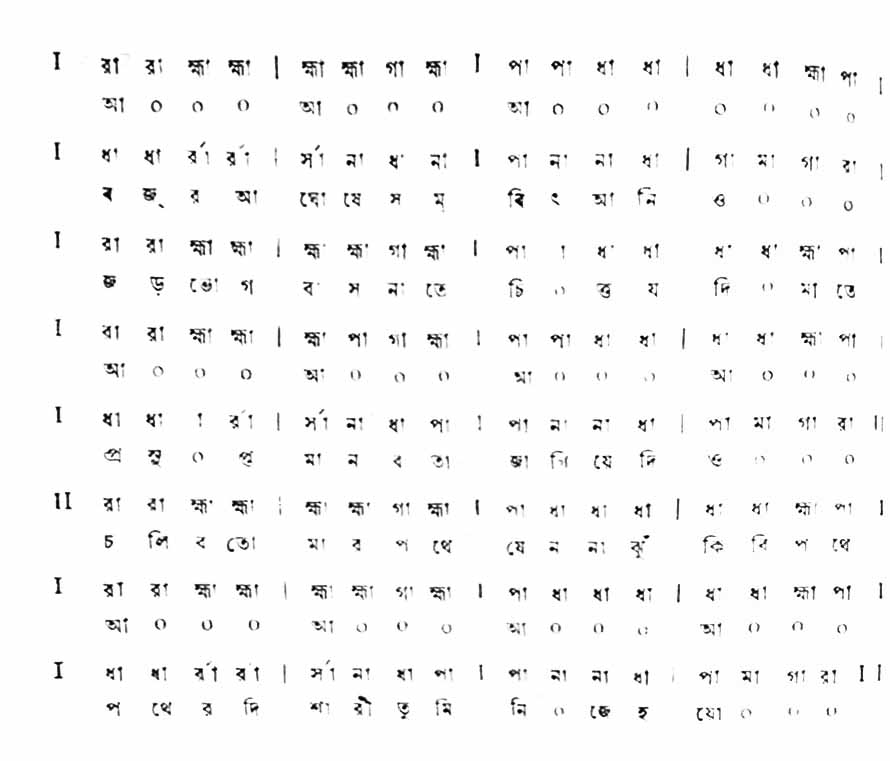 I রা রা হ্মা হ্মা | হ্মা হ্মা গা হ্মা I পা পা ধা ধা | ধা ধা হ্মা পা I
আ ০ ০ ০ আ ০ ০ ০ আ ০ ০ ০ ০ ০ ০ ০
I ধা ধা র্রা র্রা | র্সা না ধা না I পা না না ধা | গা মা গা রা I
ব জ্ র আ ঘো ষে স ম্ বি ৎ আ নি ও ০ ০ ০
I রা রা হ্মা হ্মা | হ্মা হ্মা গা হ্মা I পা া ধা ধা ধা ধা হ্মা পা I
জ ড় ভো গ বা স না তে চি ০ ত্ত য দি ০ মা তে
I রা রা হ্মা হ্মা | হ্মা পা গা হ্মা I পা পা ধা ধা | ধা ধা হ্মা পা I
আ ০ ০ ০ আ ০ ০ ০ আ ০ ০ ০ আ ০ ০ ০
I ধা ধা া র্রা | র্সা না ধা পা I পা না না ধা | পা মা গা রা II
প্র সু ০ প্ত মা ন ব তা জা গি যে দি ও ০ ০ ০
II রা রা হ্মা হ্মা | হ্মা হ্মা গা হ্মা I পা ধা ধা ধা | ধা ধা হ্মা পা I
চ লি ব তো মা র প থে যে ন না ঝুঁ কি বি প থে
I রা রা হ্মা হ্মা | হ্মা হ্মা গা হ্মা I পা ধা ধা ধা | ধা ধা হ্মা পা I
আ ০ ০ ০ আ ০ ০ ০ আ ০ ০ ০ আ ০ ০ ০
I ধা ধা র্রা র্রা | র্সা না ধা পা I পা না না ধা | পা মা গা রা II
প থে র দি শা রী তু মি নি ০ জে হ যো ০ ০ ০